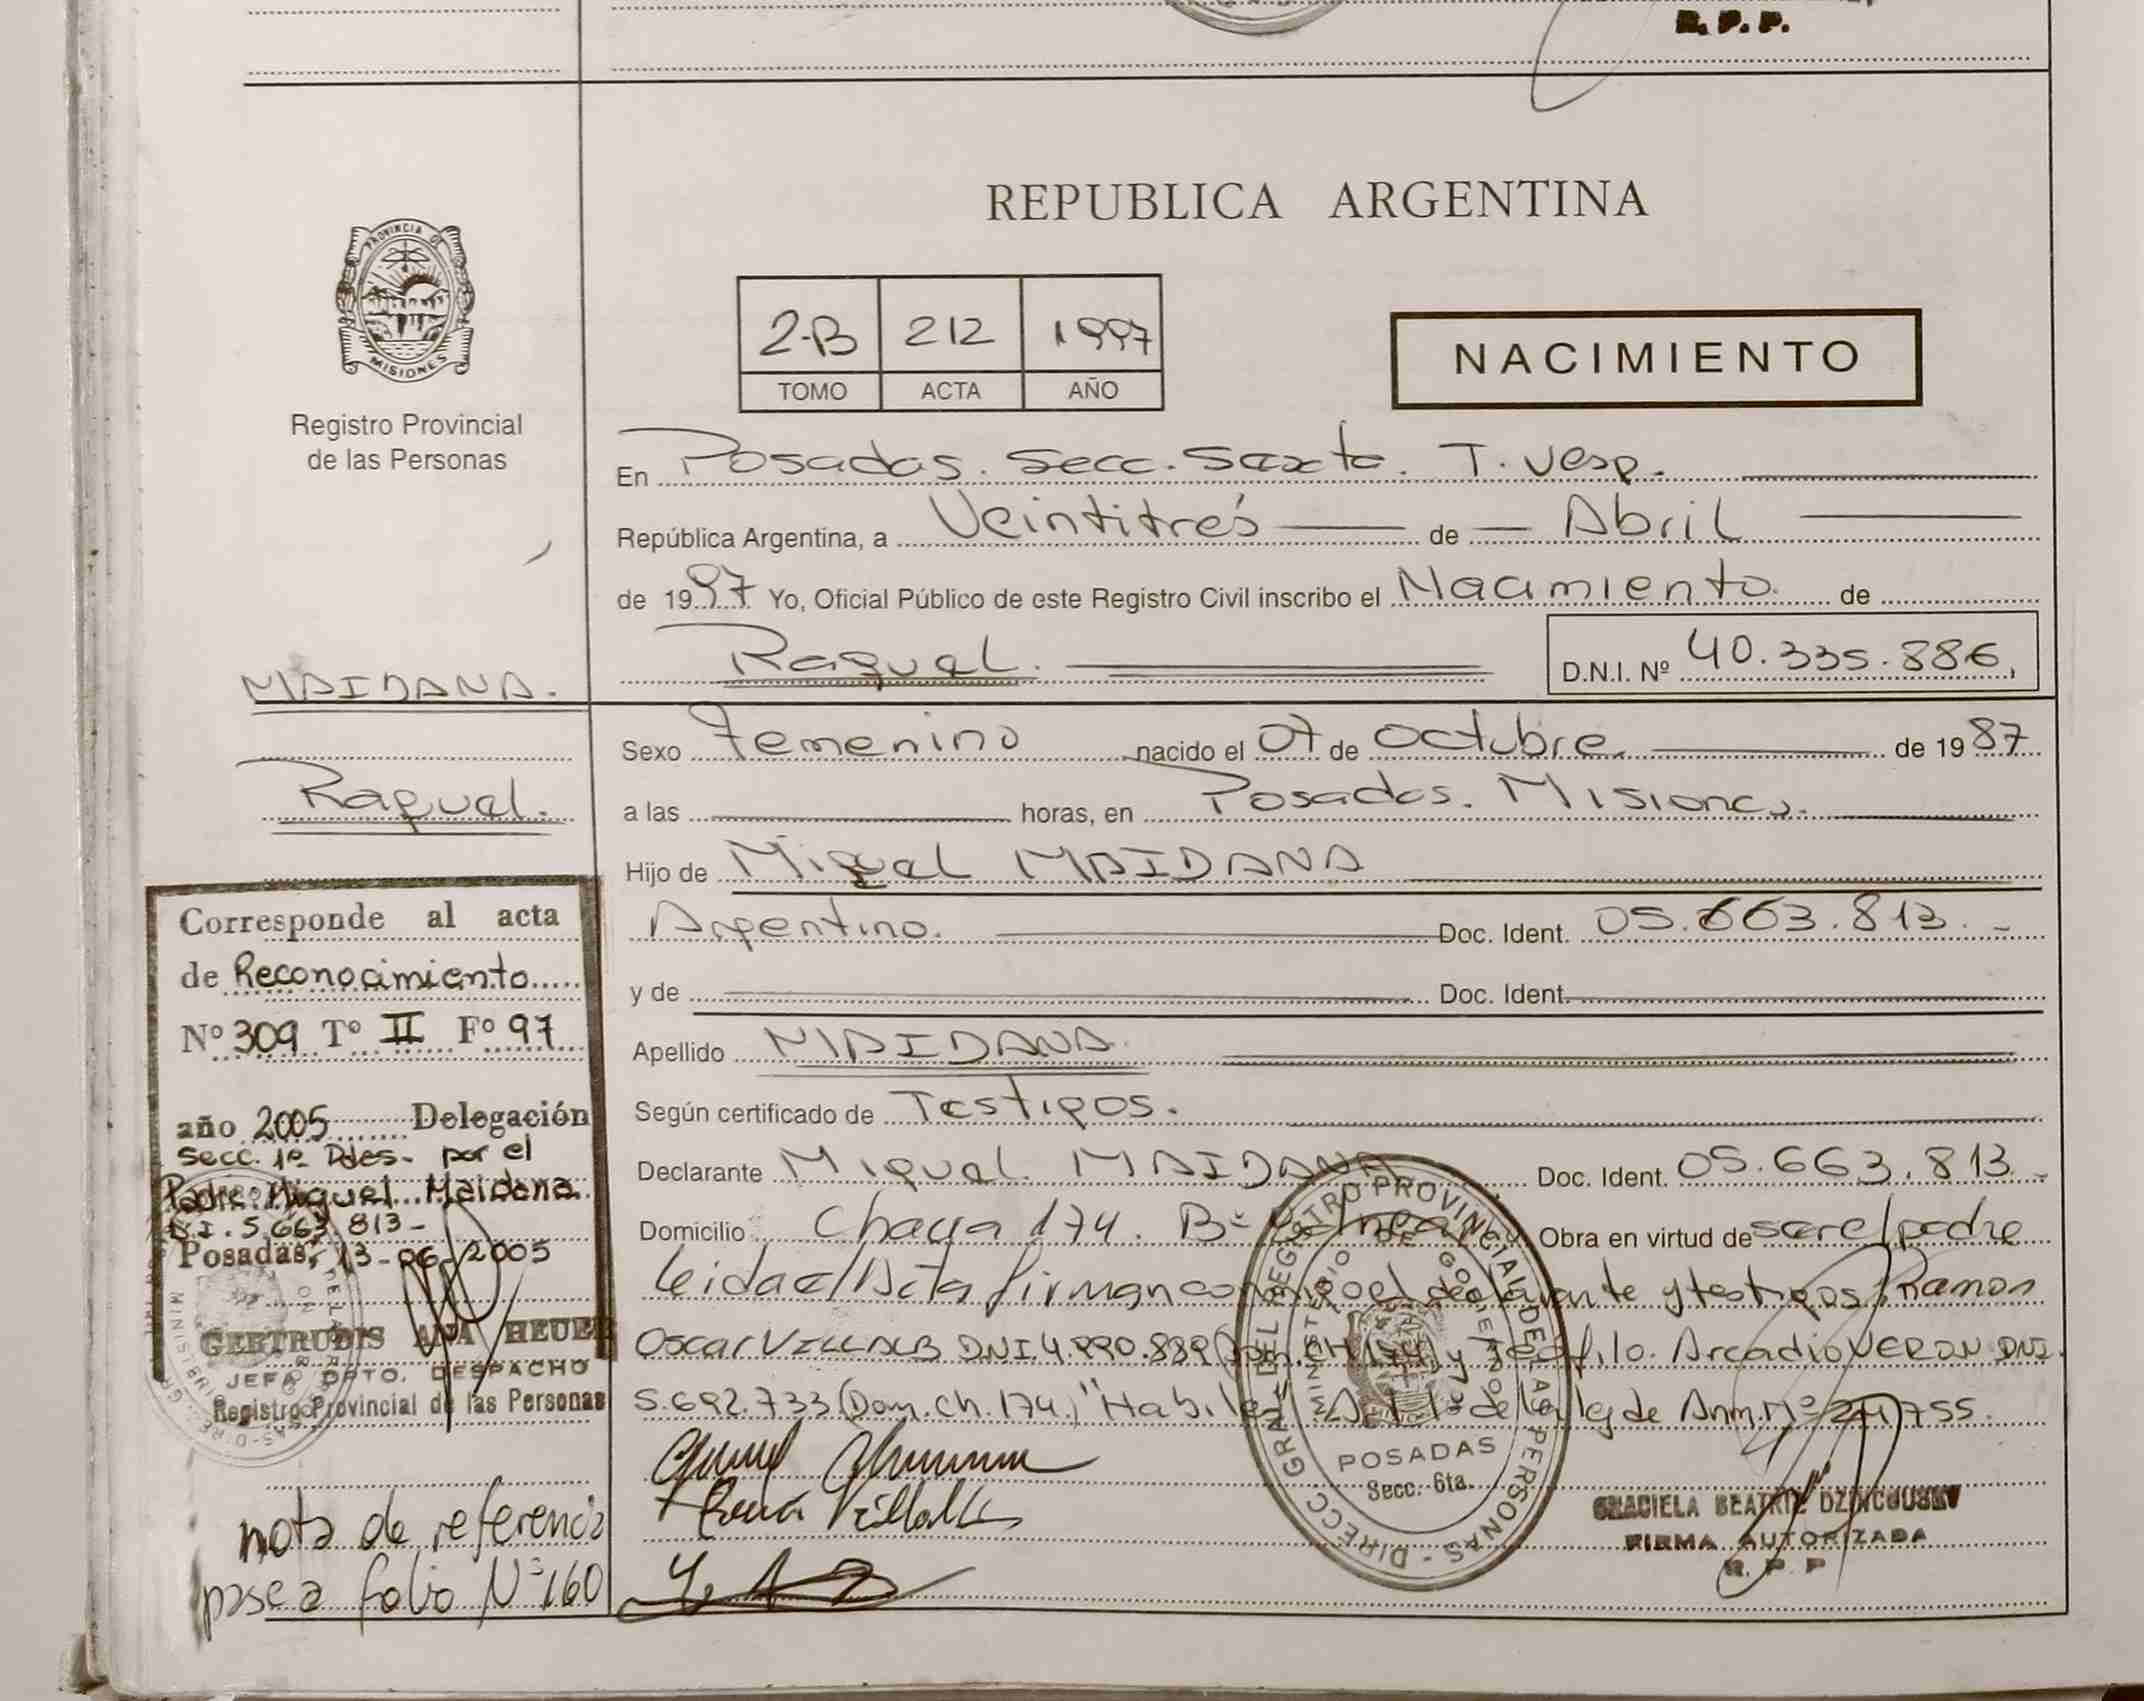 R. P. P.
REPUBLICA ARGENTINA
PROVINCIA DE
MISIONES
Registro Provincial
de las Personas
2-B 212 1997
TOMO ACTA AÑO
NACIMIENTO
En Posadas. Secc. Sexta. T. Vesp.
República Argentina, a Veintitrés de Abril
de 1997 Yo, Oficial Público de este Registro Civil inscribo el Nacimiento de
Raquel. D.N.I. Nº 40.335.886.
MAIDANA.
Raquel.
Sexo Femenino nacido el 07 de Octubre de 1987
a las horas, en Posadas. Misiones.
Hijo de Miguel MAIDANA
Argentino. Doc. Ident. 05.663.813.-
y de Doc. Ident.
Apellido MAIDANA
Según certificado de Testigos.
Declarante Miguel MAIDANA Doc. Ident. 05.663.813.-
Domicilio Chacra 174. Bº Obra en virtud de ser el padre
leida el Acta firman conmigo el declarante y testigos: Ramon
Oscar VILLALB DNI. 4.990.839 (Dom. CH 174) y Teofilo Arcadio VERON DNI.
5.692.733 (Dom. ch. 174) "Habil de la ley de Anm. Nº 24.755.
Corresponde al acta
de Reconocimiento
Nº 309 Tº II Fº 97
año 2005 Delegación
Secc. 1º Pdas. por el
Padre: Miguel Maidana
D.I. 5.663.813-
Posadas, 13-06-2005
GERTRUDIS ANA HEUER
JEFA DPTO. DESPACHO
Registro Provincial de las Personas
nota de referencia
pase a folio Nº 160
DIRECC. GRAL. DEL REGISTRO PROVINCIAL DE LAS PERSONAS
MINISTERIO DE GOBIERNO
POSADAS
Secc. 6ta.
GRACIELA BEATRIZ
FIRMA AUTORIZADA
R. P. P.